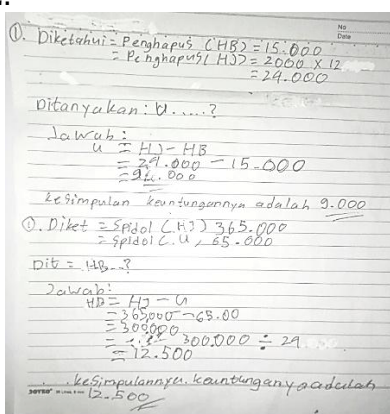 No
Date
①. Diketahui = Penghapus (HB) = 15.000
= Penghapus (HJ) = 2000 X 12
= 24.000
Ditanyakan : U.....?
Jawab :
U = HJ - HB
= 24.000 - 15.000
= 9.000
kesimpulan keuntungannya adalah 9.000
②. Diket = Spidol (HJ) 365.000
= Spidol (U, 65.000
Dit = HB...?
Jawab :
HB = HJ - U
= 365,000 - 65.00
= 300000
= 300.000 ÷ 24
= 12.500
kesimpulannya. kauntunganya adalah
12.500